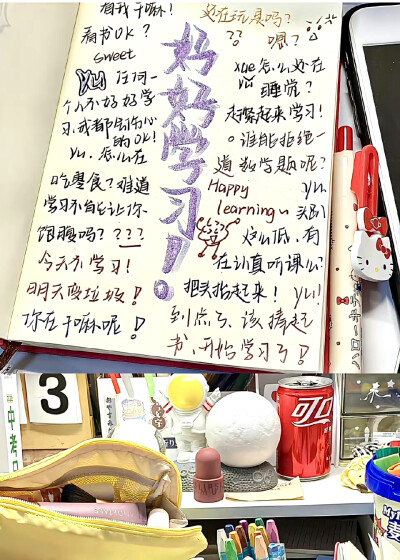 看我干嘛!
看书OK?
sweet
yu 任何一
个人不好好学
习,我都会伤心
的OK!
yu,怎么在
吃零食?难道
学习不能让你
饱腹吗????
今天不学习!
明天变垃圾!
你在干嘛呢!
好好学习!。
还在玩具吗?
?? 嗯?
yue怎么还在
睡觉?
赶紧起来学习!
。谁能拒绝一
道数学题呢?
Happy yu,
learning~ 头别
这么低,有
在认真听课么
把头抬起来! yu!
到点了,该捧起
书,开始学习了!
3
中考
可口